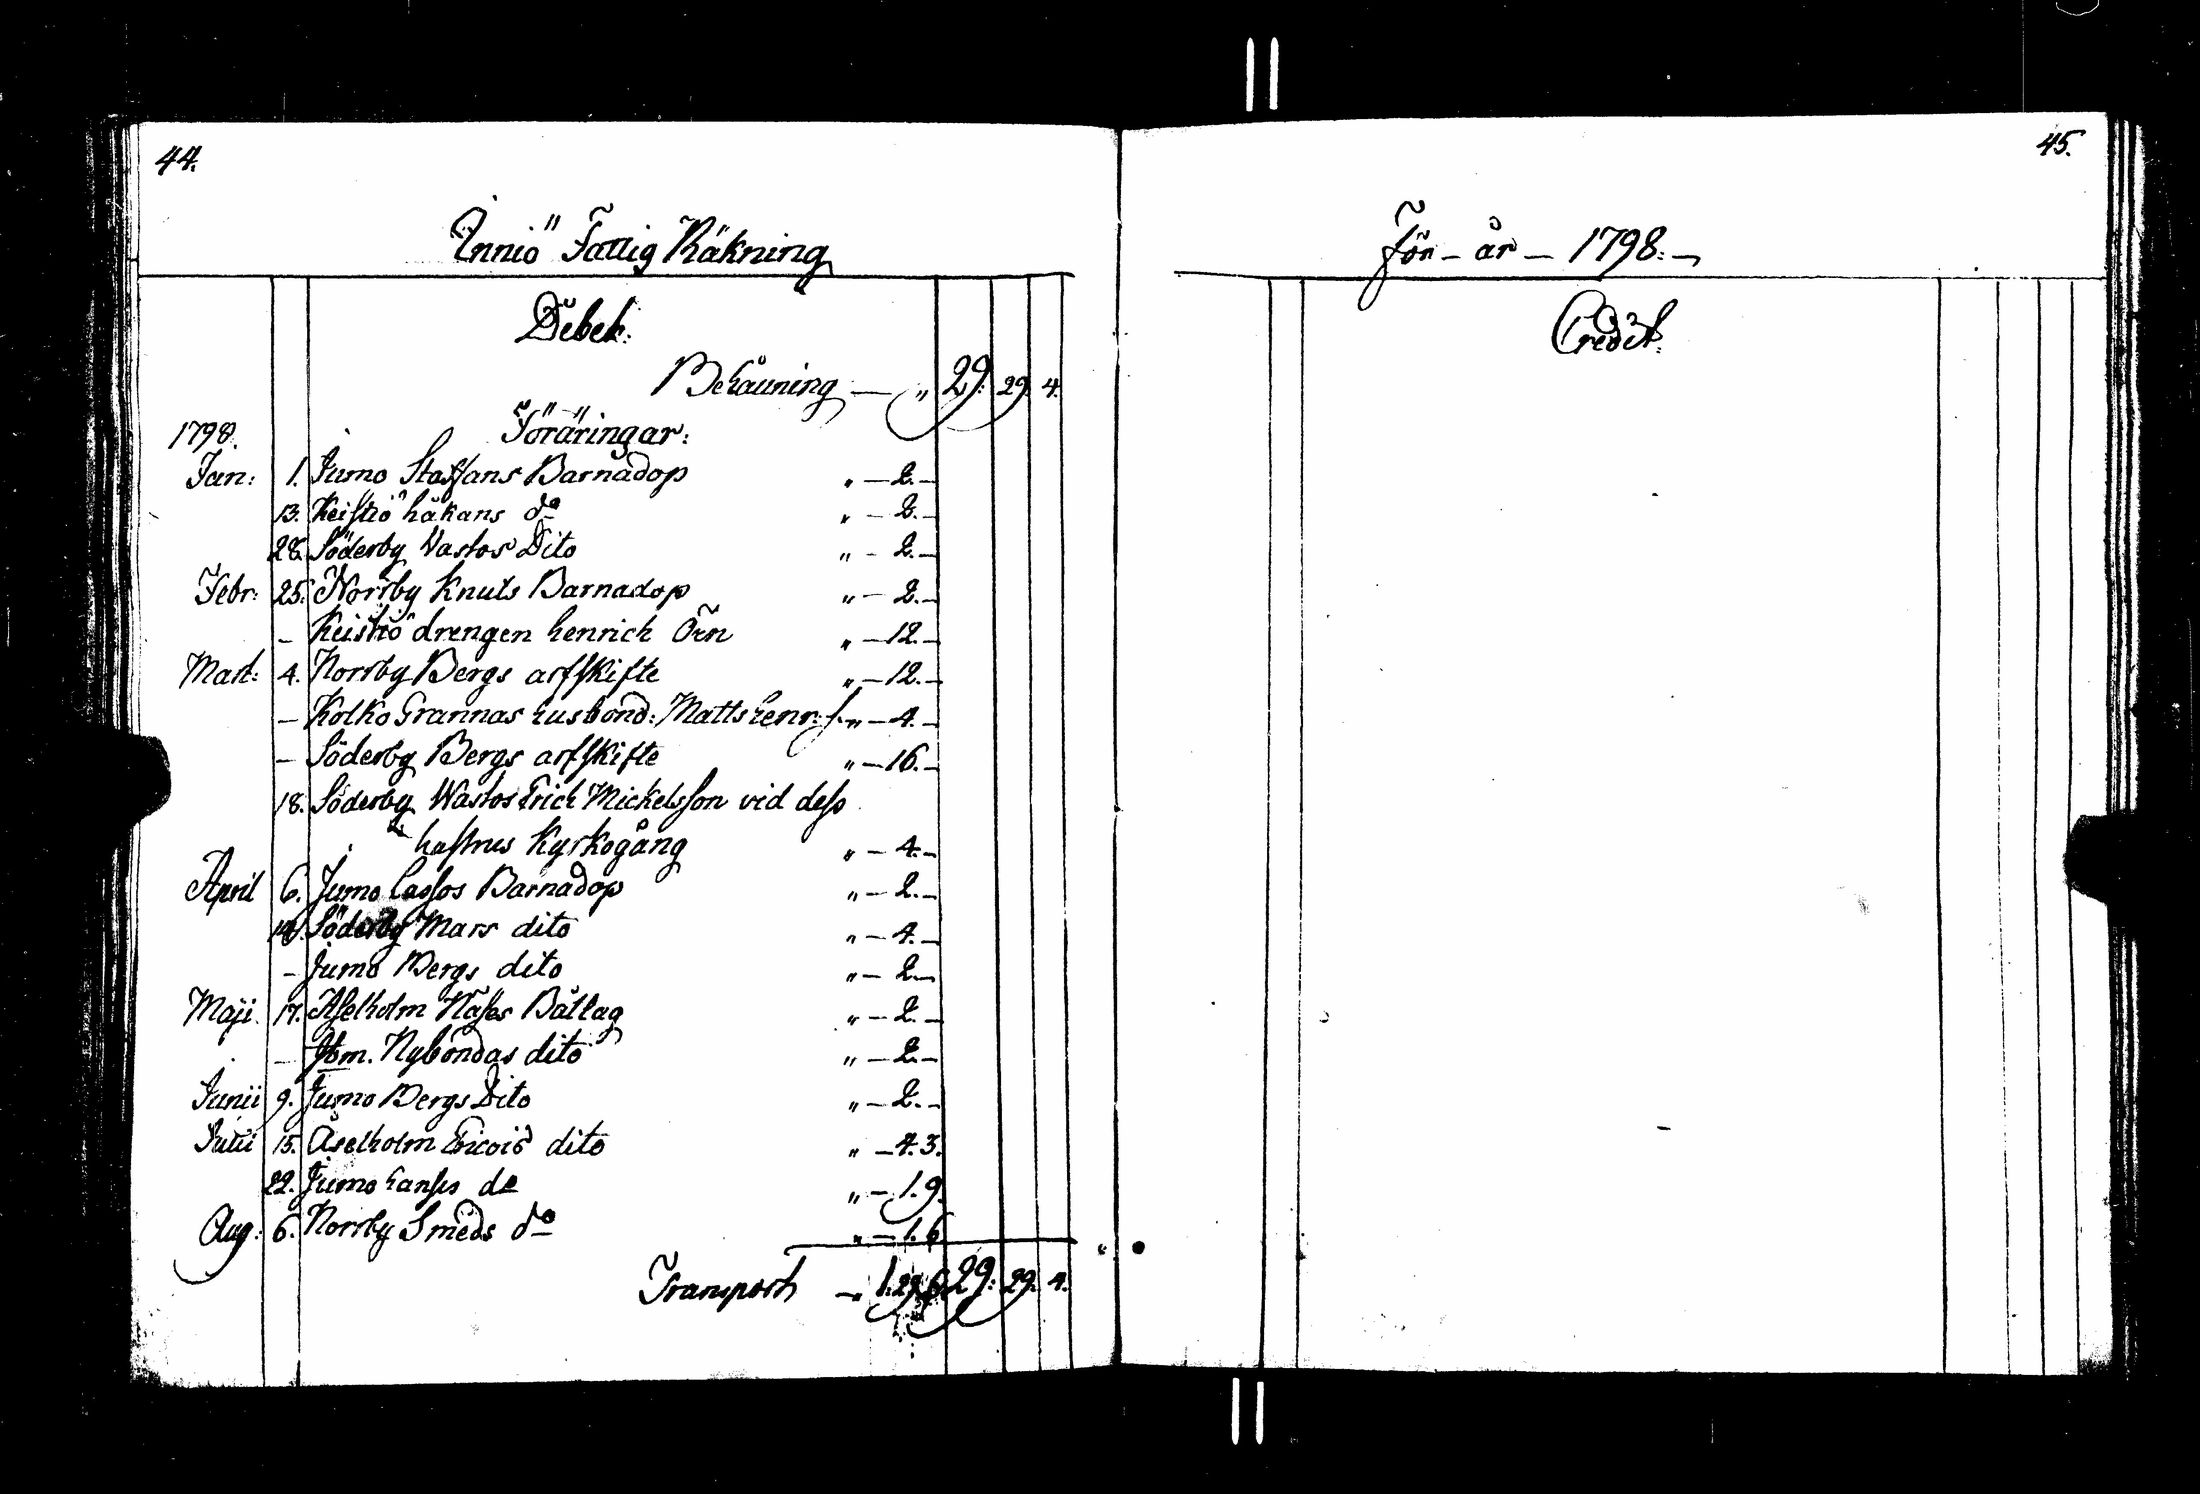 44.
Inniö Fattig Räkning
Debet:
Behållning — „ 29. 29. 4.
1798. Föräringar:
Jan: 1. Jumo Staffans Barnadop „ — 2. —
13. Keistiö håkans do „ — 2. —
28. Söderby Wastos Dito „ — 2. —
Febr: 25. Norrby Knuts Barnadop „ — 2. —
— Keistiö drengen henrich Örn „ — 12. —
Mart: 4. Norrby Bergs arfskifte „ — 12. —
— Kolko Grannas husbond: Matts henr: s. „ — 4. —
— Söderby Bergs arfskifte „ — 16. —
18. Söderby Wastos Erich Mickelsson vid dess
hustrus Kyrkogång „ — 4. —
April 6. Jumo Lassos Barnadop „ — 2. —
Söderby Mars dito „ — 4. —
— Jumo Bergs dito „ — 2. —
Maji. 17. Åselholm Båtlag „ — 2. —
— Nybondas dito „ — 2. —
Junii 9. Jumo Bergs Dito „ — 2. —
Julii 15. Åselholm dito „ — 4. 3.
22. Jumo hanses do „ — 1. 9.
Aug: 6. Norrby Smeds do „ — 1. 6
Transport — 1. 29. 6. 29. 29. 4.
45.
För — år — 1798. —
Credit.